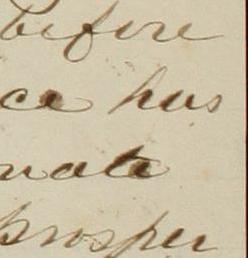 before
ce has
nate
prosper